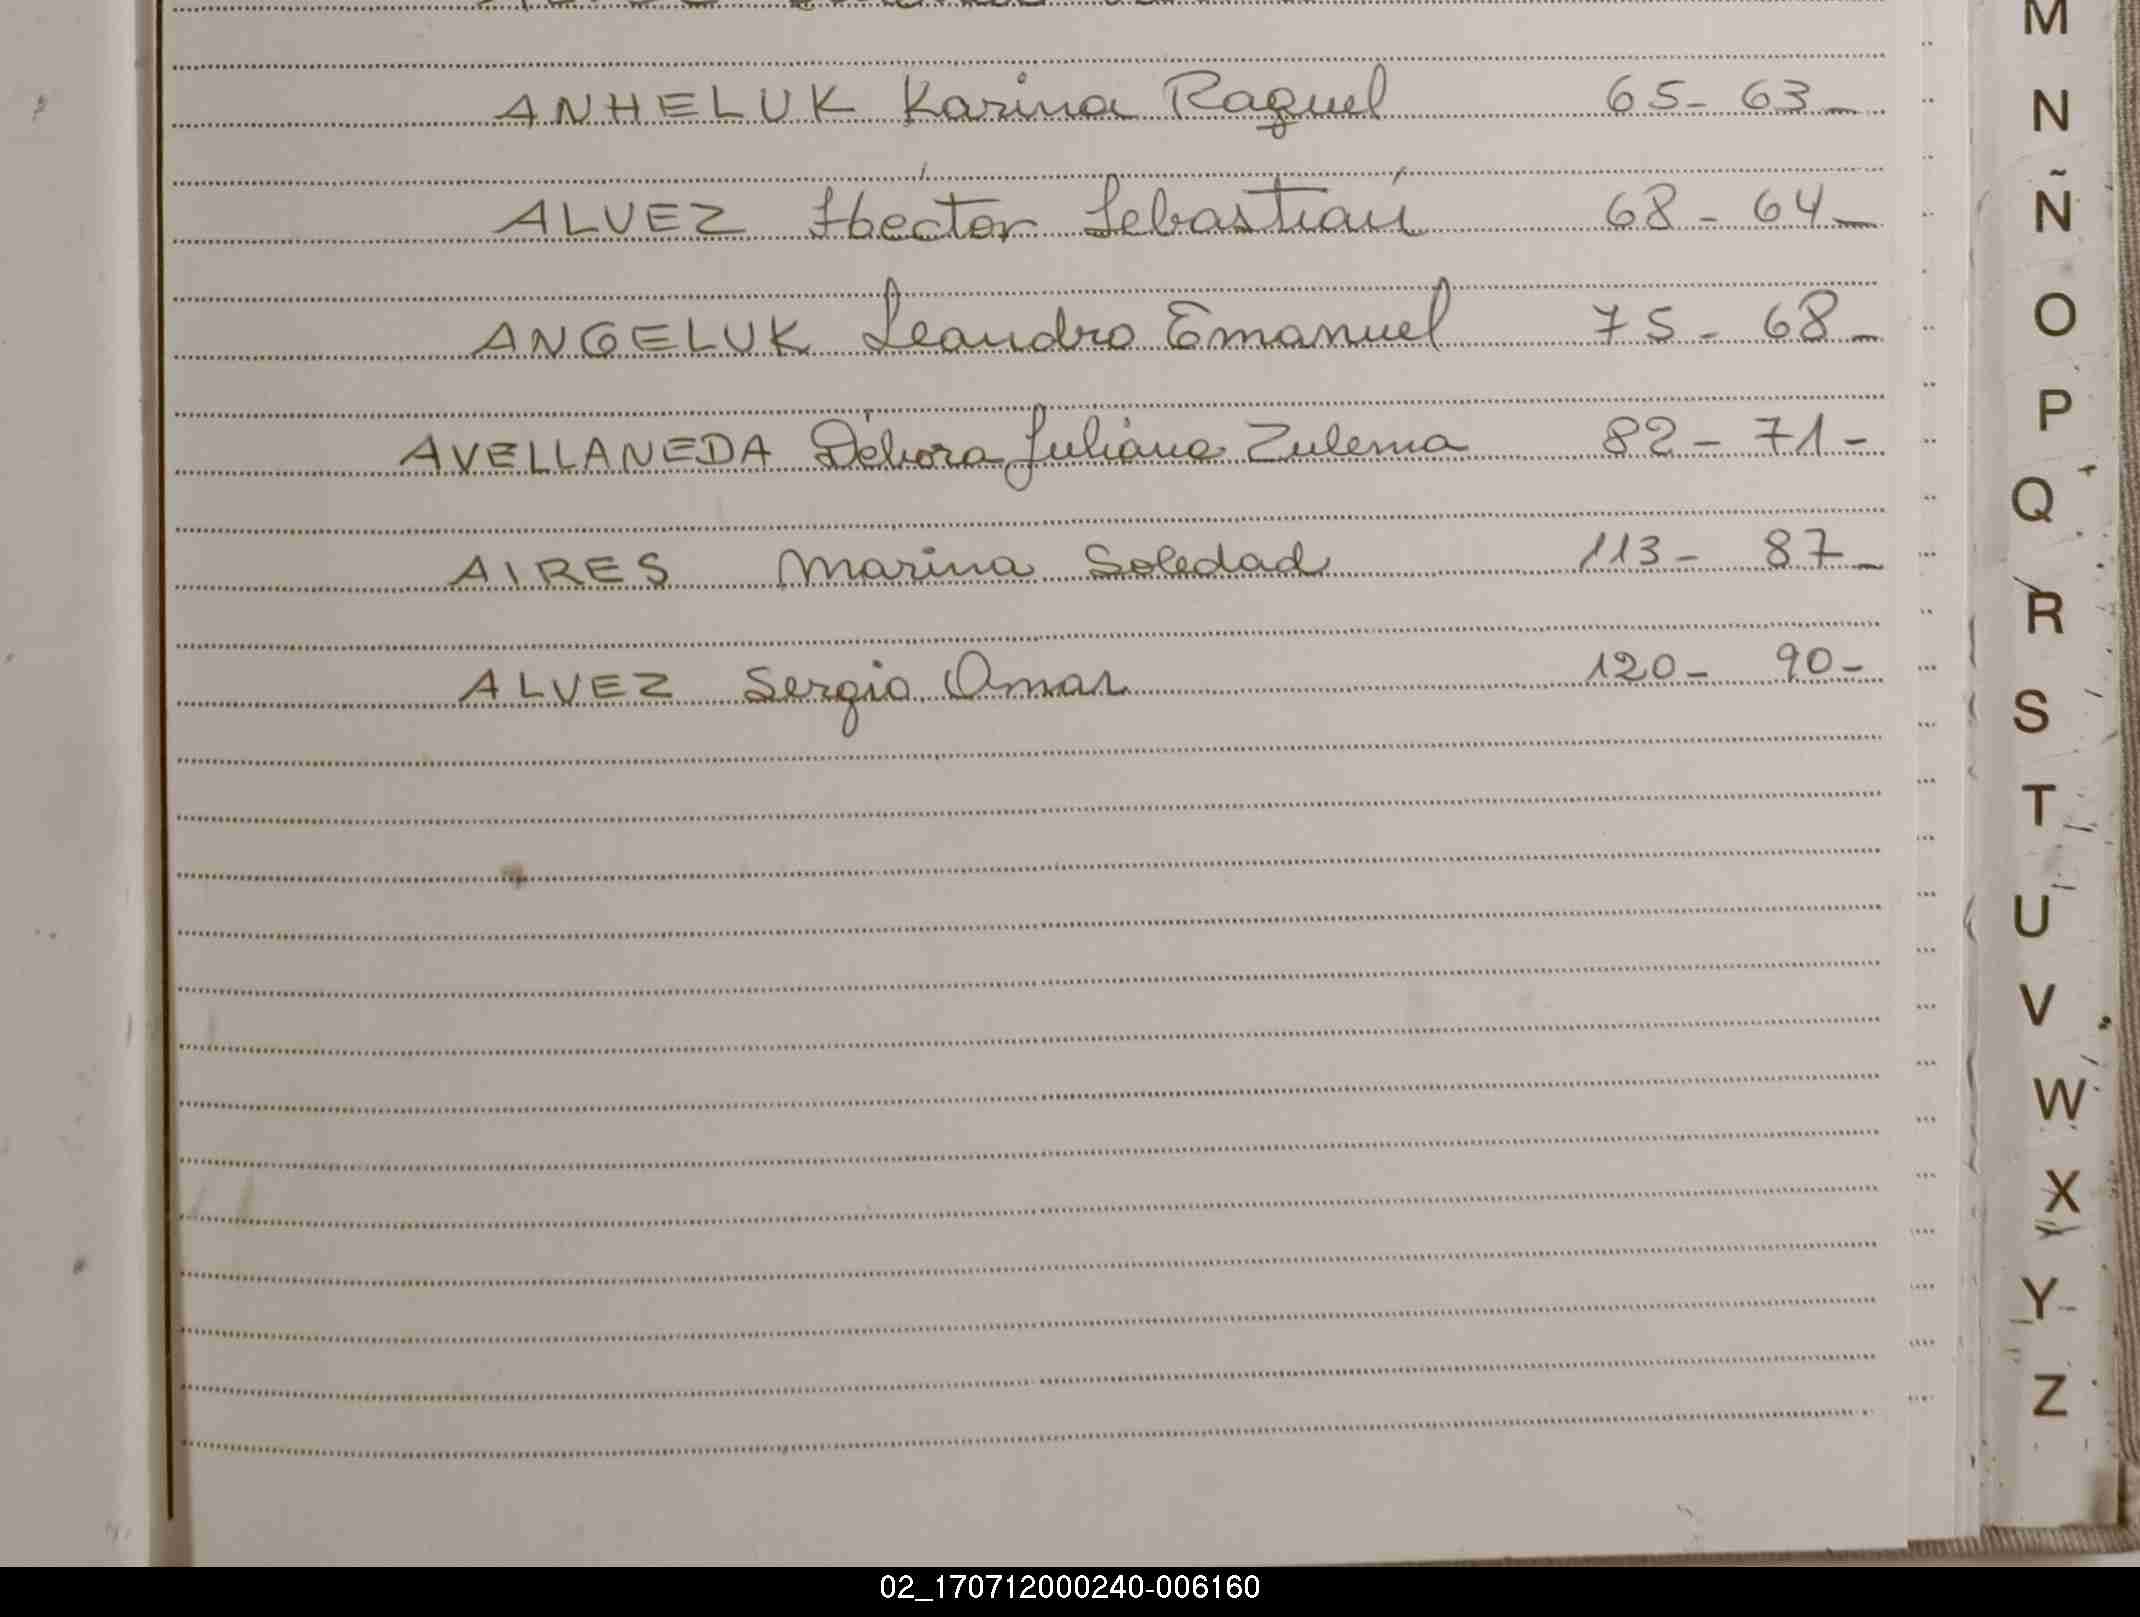 ANHELUK Karina Raquel 65- 63-
ALVEZ Héctor Sebastián 68- 64-
ANGELUK Leandro Emanuel 75- 68-
AVELLANEDA Débora Juliana Zulema 82- 71-
AIRES Marina Soledad 113- 87-
ALVEZ Sergio Omar 120- 90-
M
N
Ñ
O
P
Q
R
S
T
U
V
W
X
Y
Z
02_170712000240-006160